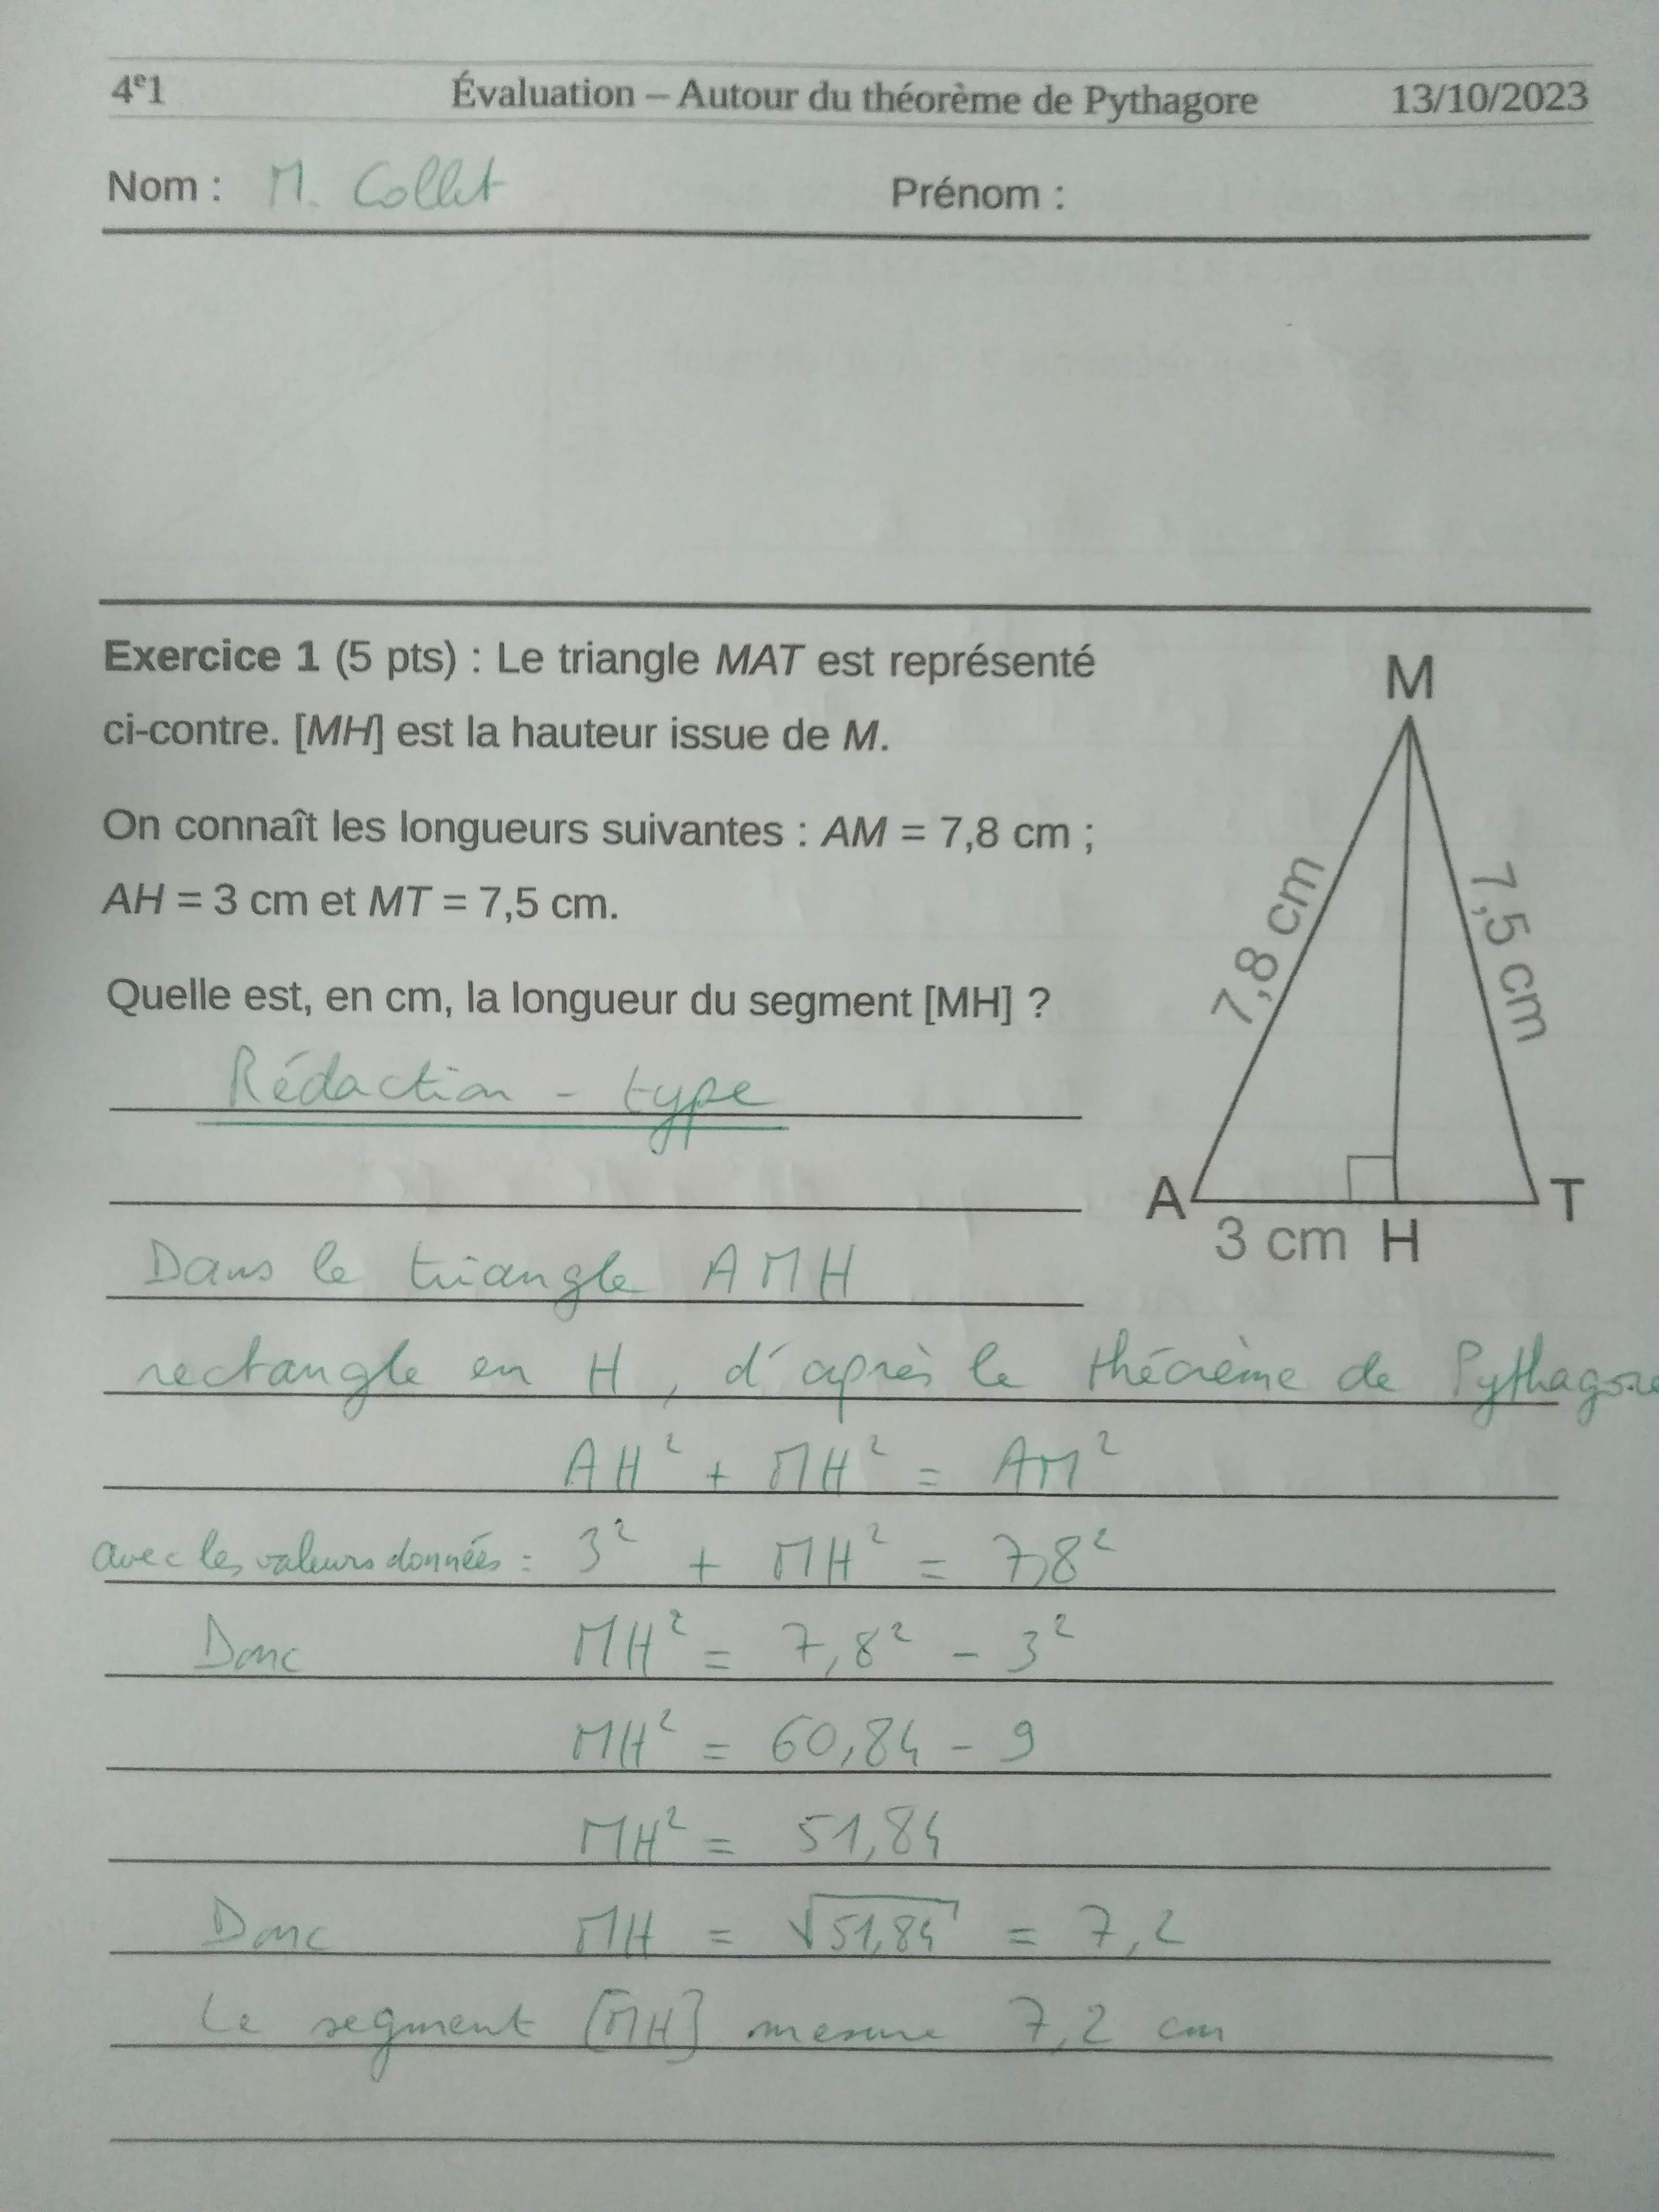 4e1 Évaluation – Autour du théorème de Pythagore 13/10/2023
Nom : M. Collet Prénom :
Exercice 1 (5 pts) : Le triangle MAT est représenté
ci-contre. [MH] est la hauteur issue de M.
On connaît les longueurs suivantes : AM = 7,8 cm ;
AH = 3 cm et MT = 7,5 cm.
Quelle est, en cm, la longueur du segment [MH] ?
M
7,8 cm
7,5 cm
A
T
3 cm H
Rédaction - type
Dans le triangle AMH
rectangle en H, d'après le théorème de Pythagore
AH² + MH² = AM²
avec les valeurs données : 3² + MH² = 7,8²
Donc MH² = 7,8² - 3²
MH² = 60,84 - 9
MH² = 51,84
Donc MH = √51,84 = 7,2
Le segment [MH] mesure 7,2 cm